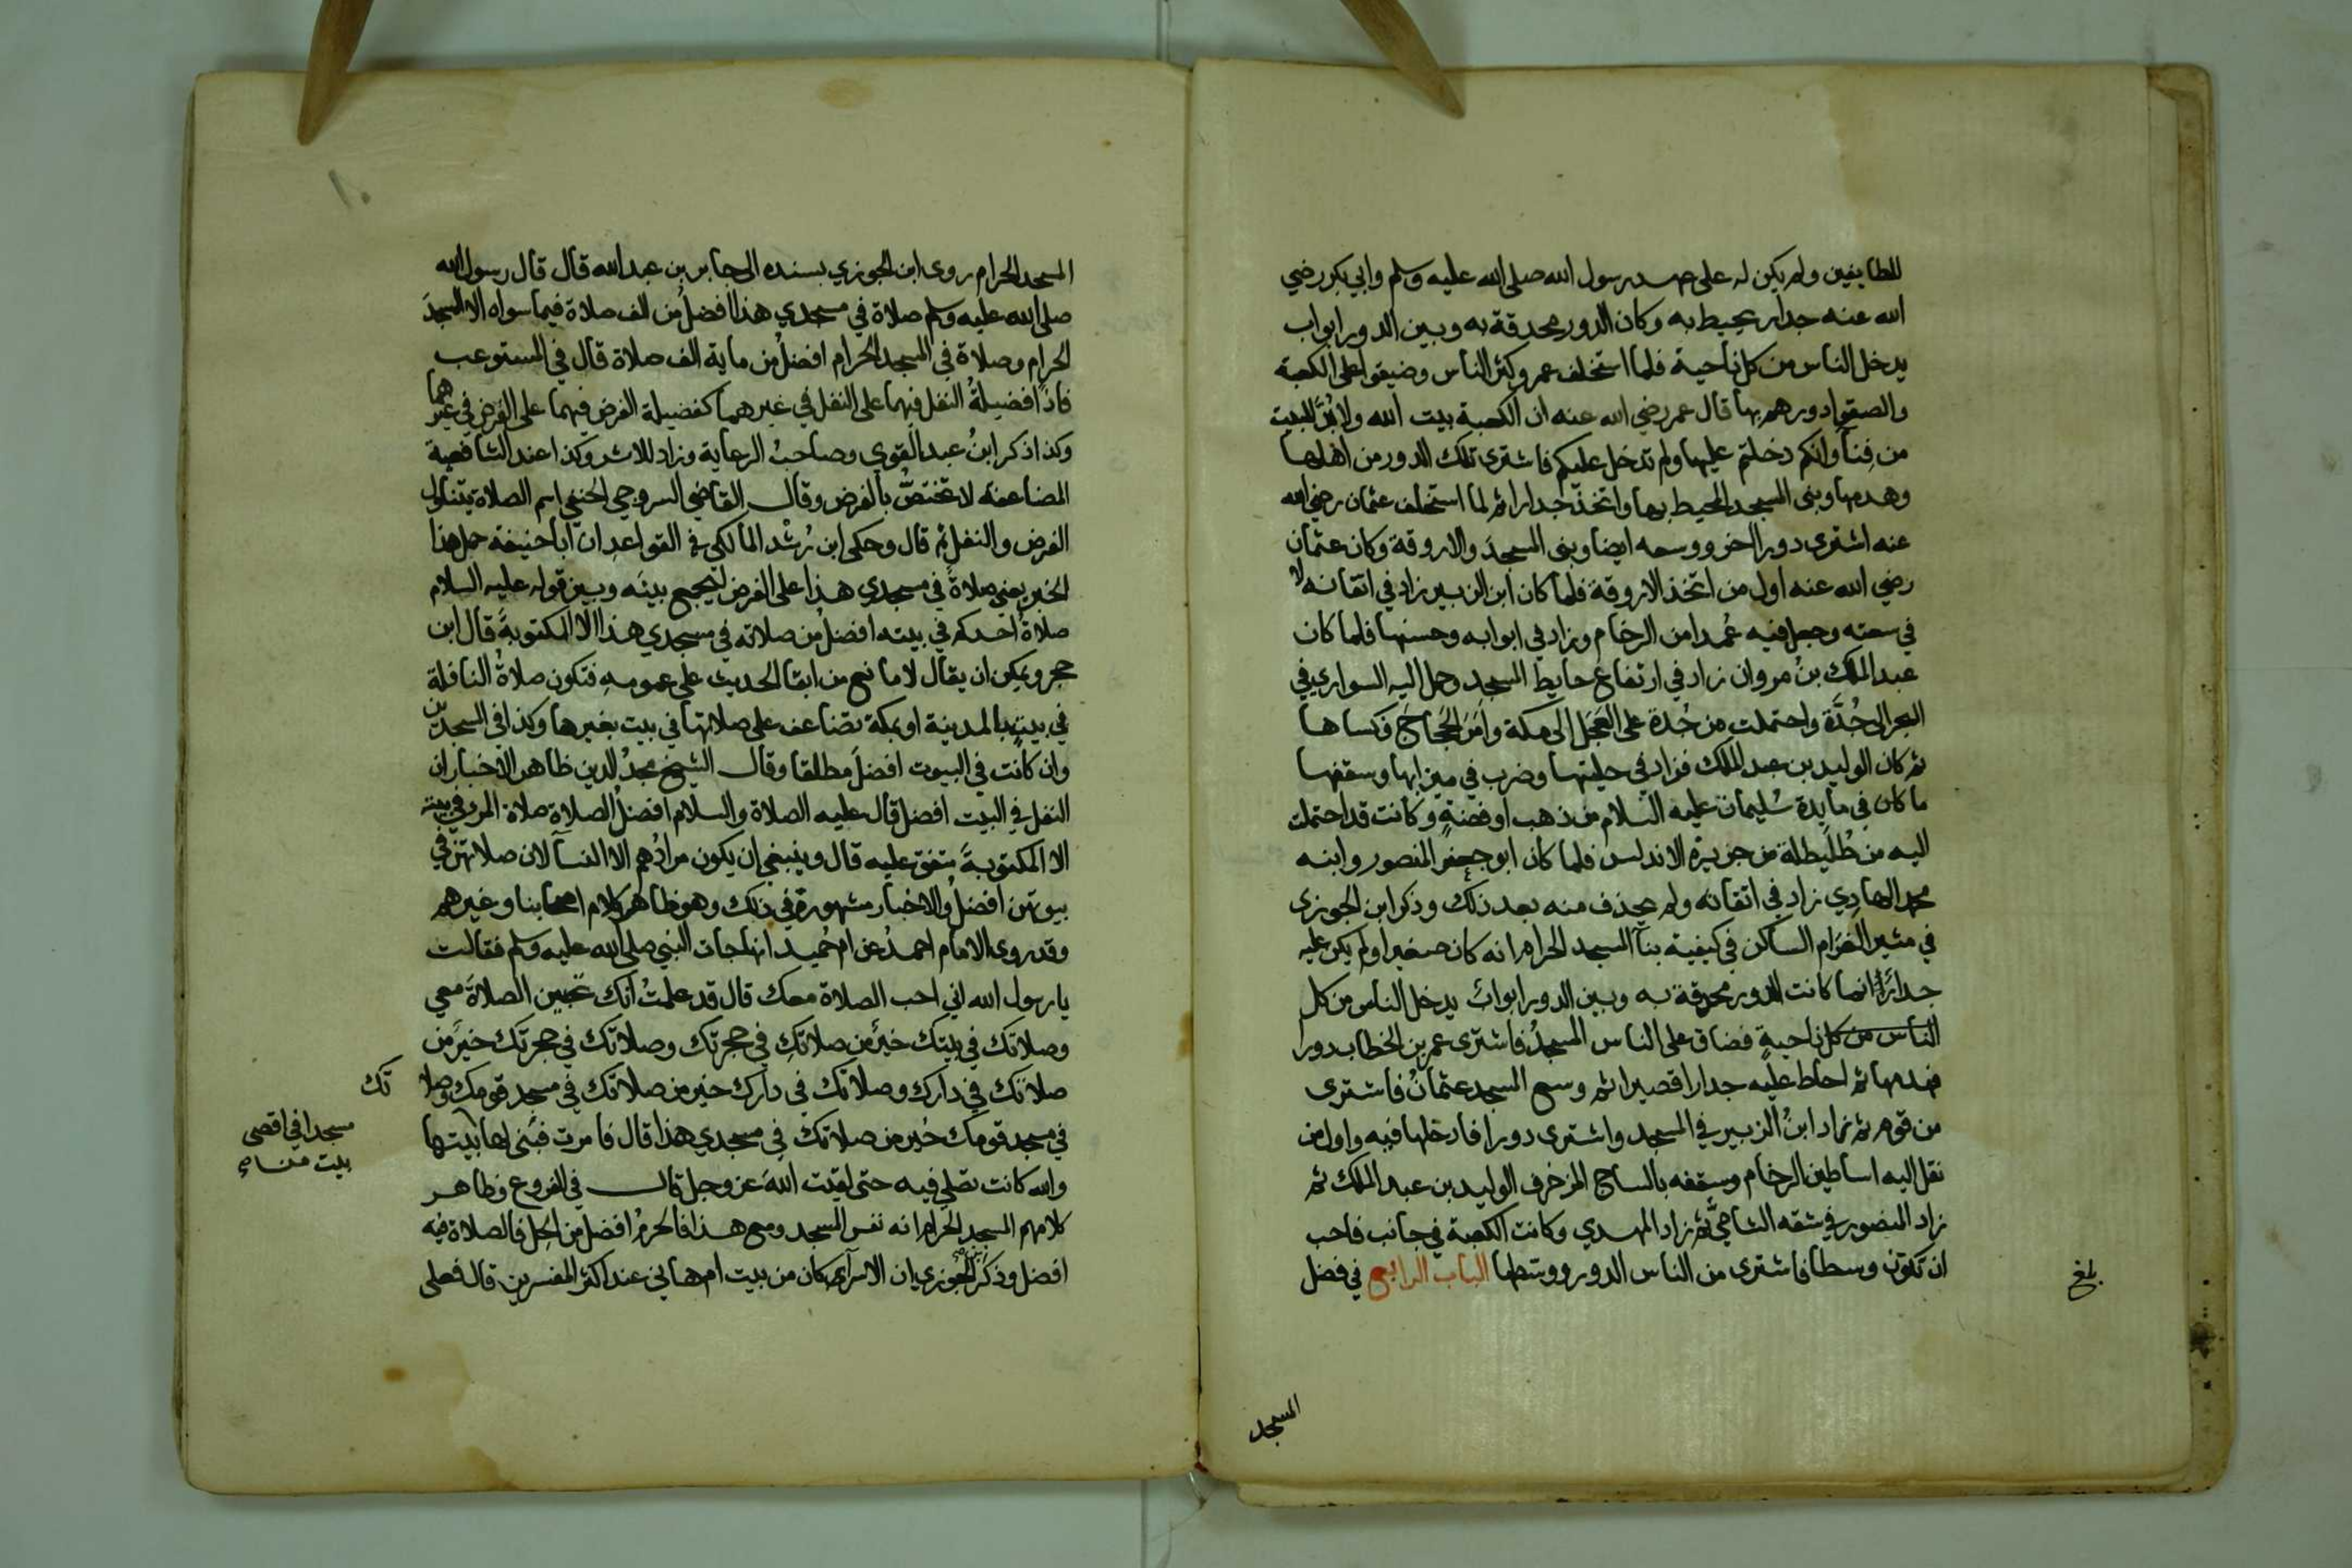 للطايفين ولم يكن له على عهد رسول الله صلى الله عليه وسلم وابي بكر رضي
الله عنه جدار يحيط به وكان الدور محدقة به وبين الدور ابواب
يدخل الناس من كل ناحية فلما استخلف عمر وكثر الناس وضيقوا على الكعبة
والصقوا دورهم بها قال عمر رضي الله عنه ان الكعبة بيت الله ولابُدَّ للبيت
من فِنآ وانكم دخلتم عليها ولم تدخل عليكم فاشترى تلك الدور من اهلها
وهدمها وبنى المسجد المحيط بها واتخذ جدارا ثم لما استخلف عثمان رضي الله
عنه اشترى دورا اخر ووسعه ايضا وبنى المسجدَ والاروقة وكان عثمان
رضي الله عنه اول من اتخذ الاروقة فلما كان ابن الزبير زاد في اتقانه لا
في سعته وجعل فيه عُمدا من الرخام وزاد في ابوابه وحسنها فلما كان
عبد الملك بنُ مروان زاد في ارتفاع حايط المسجد وحمل اليه السواري في
البحر الى جُدَّة واحتملت من جُدة على العَجَل الى مكة وامَرَ الحَجاجَ فكساها
ثم كان الوليد بن عبد الملك فزاد في حليتها وضرب في ميزابها وسقفها
ما كان في مايدة سُليمان عليه السلام من ذهب او فضةٍ وكانت قد احتملت
اليه من طُلَيطلة من جزيرة الاندلس فلما كان ابو جعفر المنصور وابنه
محمد الهادي زاد في اتقانه ولم يحذف منه بعد ذلك وذكر ابن الجوزي
في مثير الغَرَام الساكن في كيفية بنآ المسجد الحرام انه كان صغيرا ولم يكن عليه
جدارٌ انما كانت الدور محدقة به وبين الدور ابوابٌ يدخل الناس من كل
الناس من كل ناحيةٍ فضاق على الناس المسجدُ فاشترى عمر بن الخطاب دورا
فهدمها ثم احاط عليه جدارا قصيرا ثم وسع المسجد عثمانُ فاشترى
من قوم ثم زاد ابنُ الزبير في المسجد واشترى دورا فادخلها فيه واول من
نقل اليه اساطين الرخام وسقفه بالساج المزخرف الوليد بن عبد الملك ثم
زاد المنصور في شقه الشاميِّ ثم زاد المهدي وكانت الكعبة في جانب فاحب
ان تكون وسطا فاشترى من الناس الدور ووسطها الباب الرابع في فضل
بلغ
المسجد
١٠
المسجد الحرام روى ابن الجوزي بسنده الى جابر بن عبد الله قال قال رسول الله
صلى الله عليه وسلم صلاة في مسجدي هذا افضلُ من الف صلاة فيما سواه الا المسجدَ
الحرام وصلاة في المسجد الحرام افضلُ من ماية الف صلاة قال في المستوعب
فاذًا فضيلةُ النفل فيهما على النفل في غيرهما كفضيلة الفرض فيهما على الفرض في غيرهما
وكذا ذكر ابنُ عبد القوى وصاحبُ الرعاية وزاد للاثر وكذا عند الشافعية
المضاعفة لا تختصُّ بالفرض وقال القاضي السروجي الحنفي اسم الصلاة يتناول
الفرض والنفل ثم قال وحكى ابن رُشْد المالكي في القواعد ان ابا حنيفة حمل هذا
الخبر يعني صلاةً في مسجدي هذا على الفرض ليجمع بينَه وبين قوله عليه السلام
صلاةُ احدكم في بيته افضلُ من صلاته في مسجدي هذا الا المكتوبةَ قال ابن
حجر ويمكن ان يقال لا مانع من ابقا الحديث على عمومه فتكون صلاةُ النافلة
في بيتٍ بالمدينة او بمكة تضاعف على صلاتها في بيت بغيرها وكذا في المسجدين
وان كانت في البيوت افضلَ مطلقا وقال الشيخ مجدُ الدين ظاهر الاخبار ان
النفل في البيت افضل قال عليه الصلاة والسلام افضلُ الصلاة صلاة المرء في بيته
الا المكتوبةَ متفق عليه قال وينبغي ان يكون مرادُهم الا النسآ لان صلاتهن في
بيوتهن افضلُ والاخبار مشهورة في ذلك وهو ظاهر كلام اصحابنا وغيرهم
وقد روى الامام احمدُ عن ام حُميد انها جات النبي صلى الله عليه وسلم فقالت
يا رسول الله اني احب الصلاة معك قال قد علمتُ انك تحبين الصلاةَ معي
وصلاتك في بيتك خيرٌ من صلاتكِ في حجرتك وصلاتك في حجرتك خيرٌ من
صلاتك في دارك وصلاتك في دارك خير من صلاتك في مسجد قومك وصلا
تك
في مسجد قومك خير من صلاتك في مسجدي هذا قال فامرت فبُني لها بيتها
مسجدا في اقصى
بيت من
والله كانت تصلي فيه حتى لقيت اللهَ عز وجل قال في الفروع وظاهر
كلامهم المسجد الحرام انه نفس المسجد ومع هذا فالحرمُ افضل من الحل فالصلاة فيه
افضل وذكر ابن الجوزي ان الاسرآ كان من بيت ام هاني عند اكثر المفسرين قال فعلى